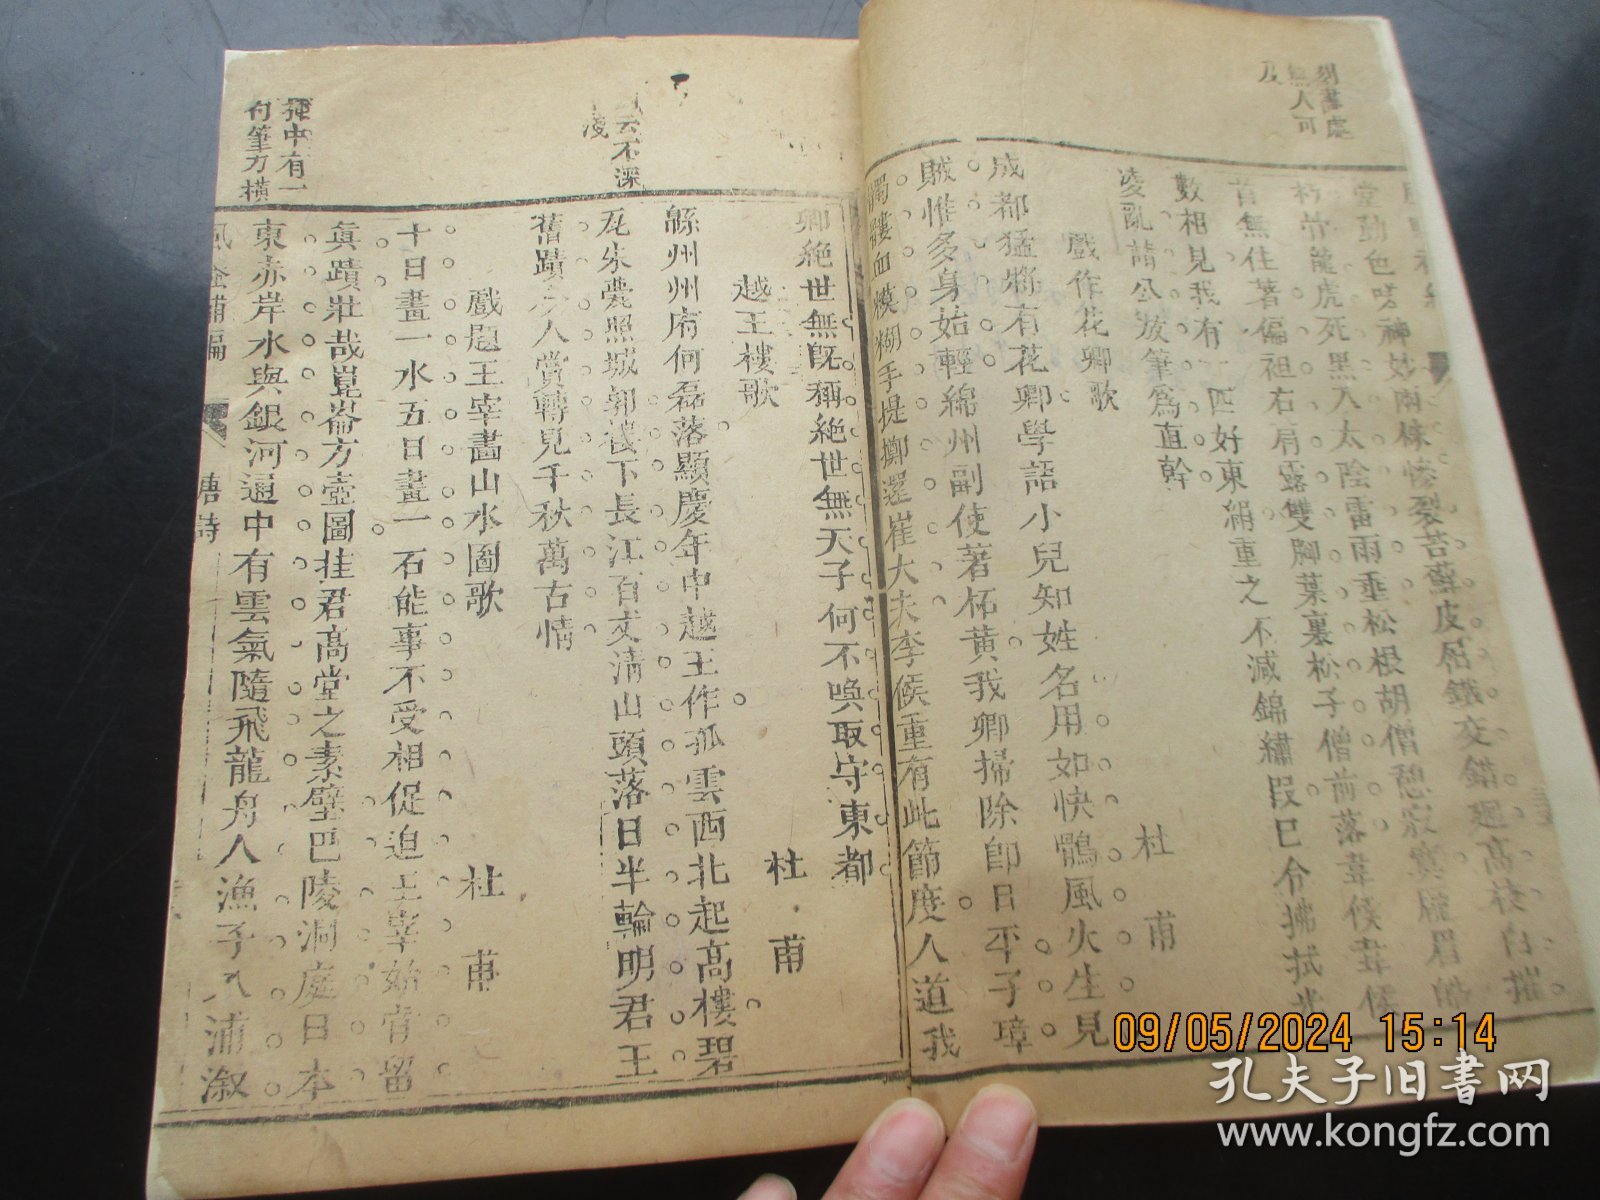 無人可
及
堂動色嗟神妙兩株慘裂苔蘚皮屈鐵交錯廻高枝白摧
朽骨龍虎死黑入太陰雷雨垂松根胡僧憩寂寞龐眉皓
首無住著偏袒右肩露雙脚葉裏松子僧前落韋侯韋侯
數相見我有一匹好東絹重之不減錦繡段已令拂拭光
凌亂請公放筆爲直幹
戲作花卿歌
杜甫
成都猛將有花卿學語小兒知姓名用如快鶻風火生見
賊惟多身始輕綿州副使著柘黃我卿掃除卽日平子璋
髑髏血模糊手提擲還崔大夫李侯重有此節度人道我
卿絶世無旣稱絶世無天子何不喚取守東都
越王樓歌
杜甫
緜州州府何磊落顯慶年中越王作孤雲西北起高樓碧
瓦朱甍照城郭樓下長江百丈淸山頭落日半輪明君王
舊蹟今人賞轉見千秋萬古情
云不深
淺
戲題王宰畫山水圖歌
杜甫
十日畫一水五日畫一石能事不受相促迫王宰始肯留
眞蹟壯哉崑崙方壺圖挂君高堂之素壁巴陵洞庭日本
東赤岸水與銀河通中有雲氣隨飛龍舟人漁子入浦溆
揷中有一
句筆力橫
唐詩
09/05/2024 15:14
孔夫子旧書网
www.kongfz.com